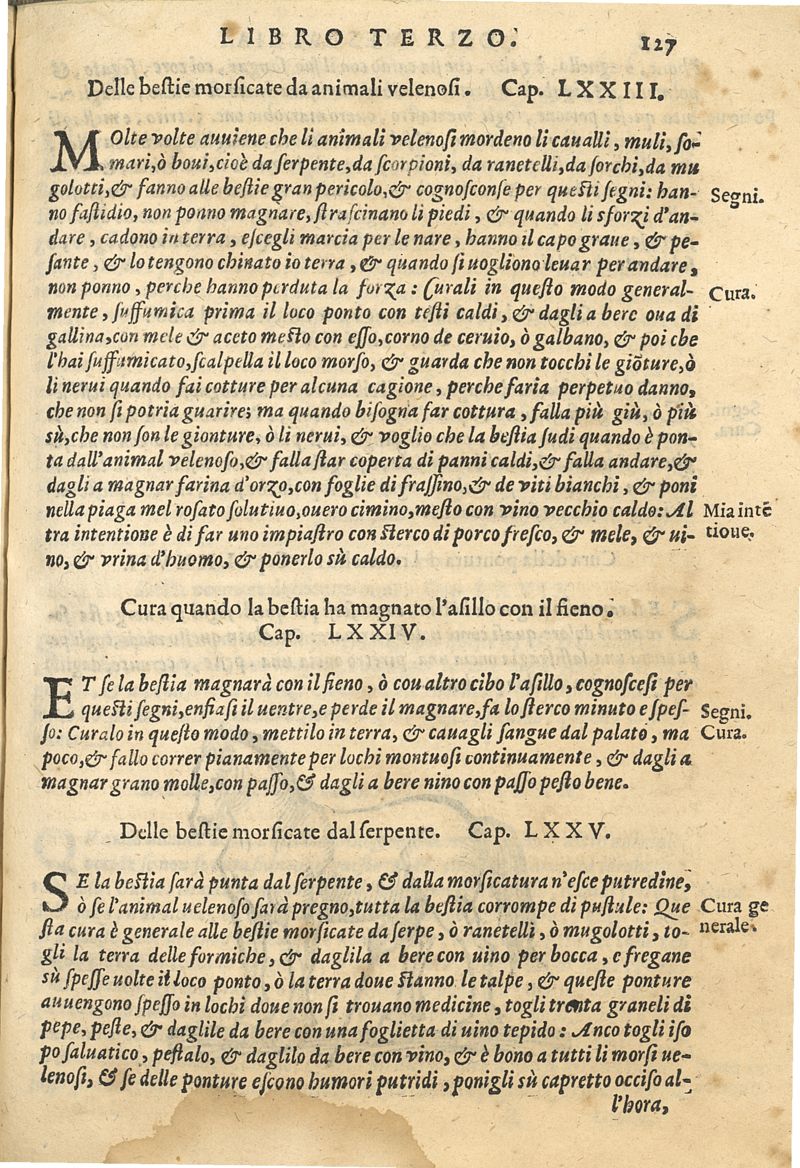 LIBRO TERZO. 127
Delle bestie morsicate da animali velenosi. Cap. LXXIII.
MOlte volte auuiene che li animali velenosi mordeno li caualli, muli, so-
mari, ò boui, cioè da serpente, da scorpioni, da ranetelli, da sorchi, da mu
golotti, & fanno alle bestie gran pericolo, & cognosconse per questi segni: han-
Segni.
no fastidio, non ponno magnare, strascinano li piedi, & quando li sforzi d'an-
dare, cadono in terra, escegli marcia per le nare, hanno il capo graue, & pe-
sante, & lo tengono chinato io terra, & quando si uogliono leuar per andare,
non ponno, perche hanno perduta la forza: Curali in questo modo general-
Cura.
mente, suffumica prima il loco ponto con testi caldi, & dagli a bere oua di
gallina, con mele & aceto mesto con esso, corno de ceruio, ò galbano, & poi che
l'hai suffumicato, scalpella il loco morso, & guarda che non tocchi le giõture, ò
li nerui quando fai cotture per alcuna cagione, perche faria perpetuo danno,
che non si potria guarire; ma quando bisogna far cottura, falla più giù, ò più
sù, che non son le gionture, ò li nerui, & voglio che la bestia sudi quando è pon-
ta dall'animal velenoso, & falla star coperta di panni caldi, & falla andare, &
dagli a magnar farina d'orzo, con foglie di frassino, & de viti bianchi, & poni
nella piaga mel rosato solutiuo, ouero cimino, mesto con vino vecchio caldo: Al
Mia intẽ
tra intentione è di far uno impiastro con sterco di porco fresco, & mele, & ui-
tioue.
no, & vrina d'huomo, & ponerlo sù caldo.
Cura quando la bestia ha magnato l'asillo con il fieno.
Cap. LXXIV.
ET se la bestia magnarà con il fieno, ò cou altro cibo l'asillo, cognoscesi per
questi segni, enfiasi il uentre, e perde il magnare, fa lo sterco minuto e spes-
Segni.
so: Curalo in questo modo, mettilo in terra, & cauagli sangue dal palato, ma
Cura.
poco, & fallo correr pianamente per lochi montuosi continuamente, & dagli a
magnar grano molle, con passo, & dagli a bere nino con passo pesto bene.
Delle bestie morsicate dal serpente. Cap. LXXV.
SE la bestia sarà punta dal serpente, & dalla morsicatura n'esce putredine,
ò se l'animal uelenoso sarà pregno, tutta la bestia corrompe di pustule: Que
Cura ge
sta cura è generale alle bestie morsicate da serpe, ò ranetelli, ò mugolotti, to-
nerale.
gli la terra delle formiche, & daglila a bere con uino per bocca, e fregane
sù spesse uolte il loco ponto, ò la terra doue stanno le talpe, & queste ponture
auuengono spesso in lochi doue non si trouano medicine, togli trenta graneli di
pepe, peste, & daglile da bere con una foglietta di uino tepido: Anco togli iso
po saluatico, pestalo, & daglilo da bere con vino, & è bono a tutti li morsi ue-
lenosi, & se delle ponture escono humori putridi, ponigli sù capretto occiso al-
l'hora,